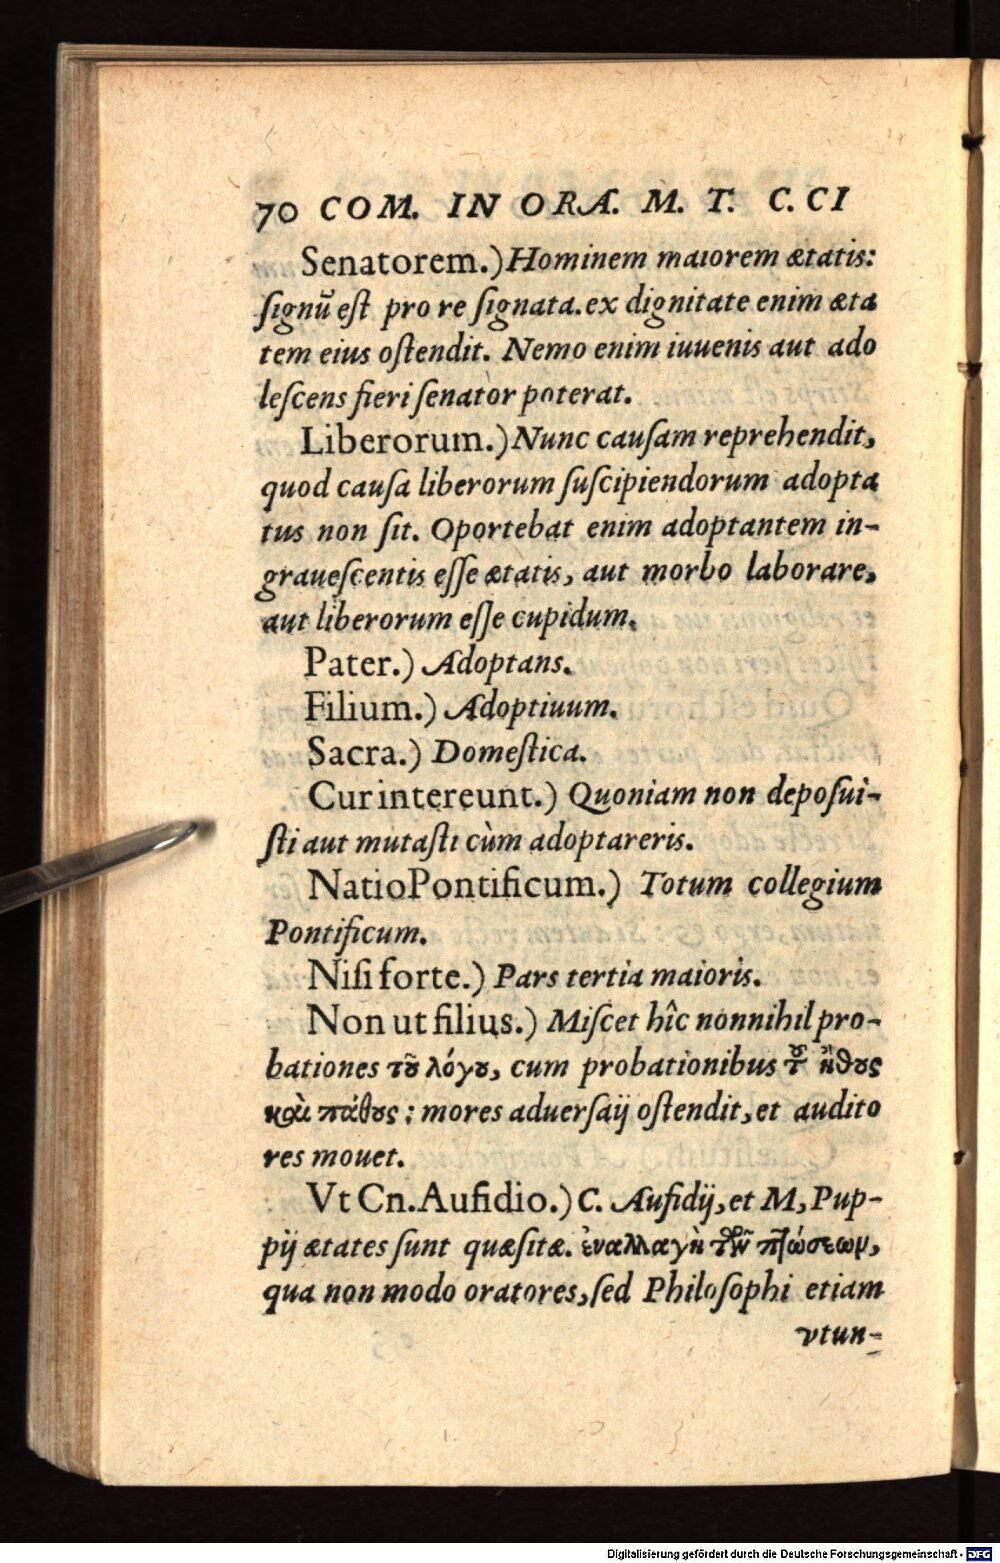 70 COM. IN ORA. M. T. C. CI
Senatorem.) Hominem maiorem ætatis:
ſignũ eſt pro re ſignata. ex dignitate enim æta
tem eius oſtendit. Nemo enim iuuenis aut ado
leſcens fieri ſenator poterat.
Liberorum.) Nunc cauſam reprehendit,
quod cauſa liberorum ſuſcipiendorum adopta
tus non ſit. Oportebat enim adoptantem in-
graueſcentis eſſe ætatis, aut morbo laborare,
aut liberorum eſſe cupidum.
Pater.) Adoptans.
Filium.) Adoptiuum.
Sacra.) Domeſtica.
Cur intereunt.) Quoniam non depoſui-
ſti aut mutaſti cùm adoptareris.
Natio Pontificum.) Totum collegium
Pontificum.
Niſi forte.) Pars tertia maioris.
Non ut filius.) Miſcet hîc nonnihil pro-
bationes τοῦ λόγου, cum probationibus τοῦ ἤθους
καὶ πάθους: mores aduerſaij oſtendit, et audito
res mouet.
Vt Cn. Aufidio.) C. Aufidij, et M, Pup-
pij ætates ſunt quæſitæ. ἐναλλαγὴ τῶν πτώσεων,
qua non modo oratores, ſed Philoſophi etiam
vtun-
Digitalisierung gefördert durch die Deutsche Forschungsgemeinschaft - DFG